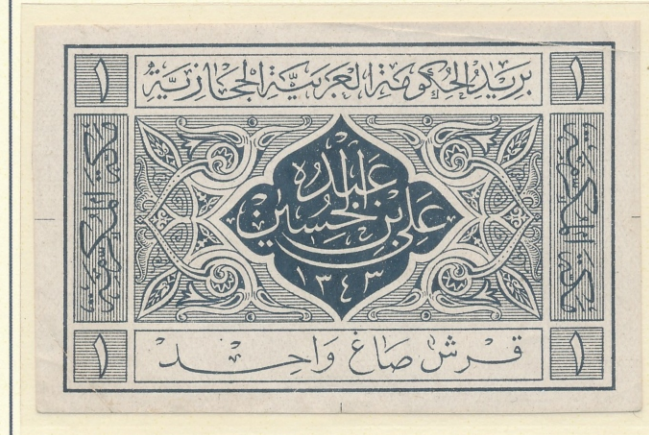 ١ بريد الحكومة العربية الحجازية ١
مكة المكرمة
عبده
علي بن الحسين
١٣٤٣
مكة المكرمة
١ قرش صاغ واحد ١